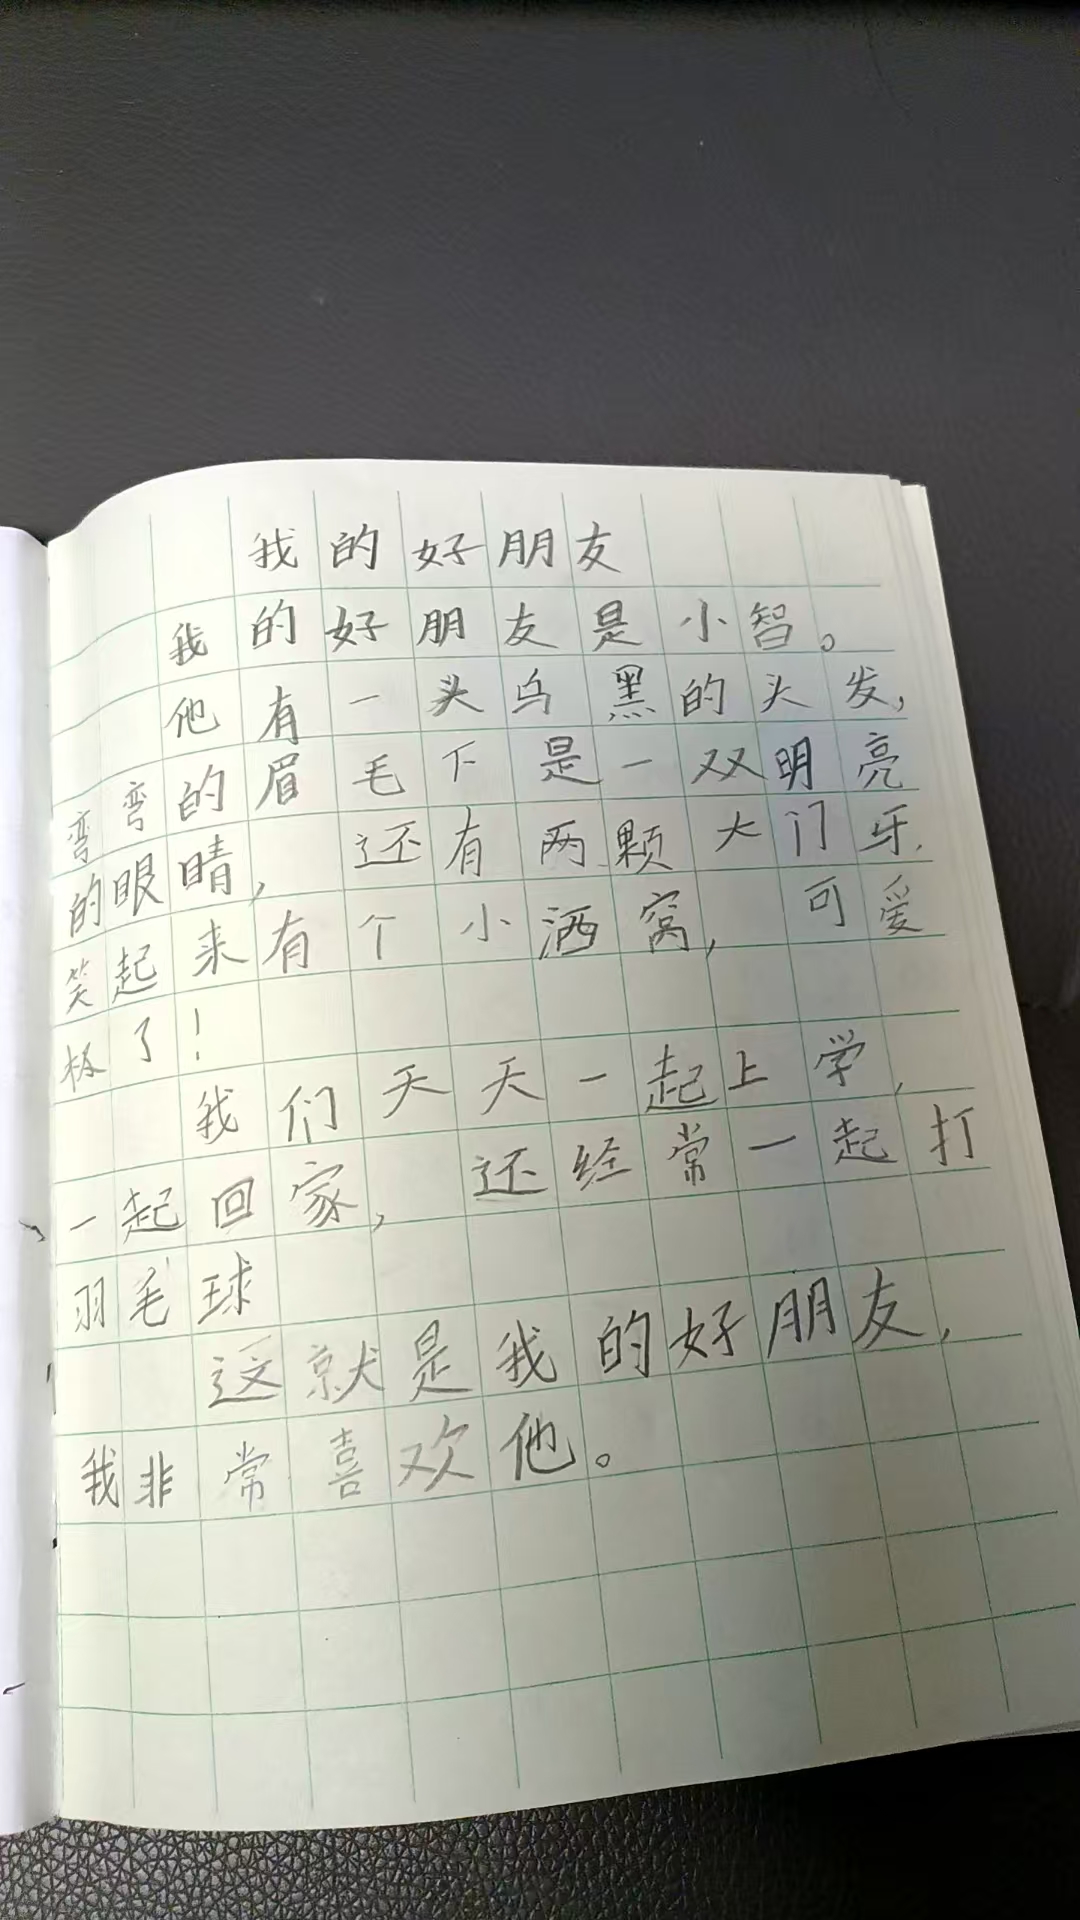 我的好朋友
我的好朋友是小智。
他有一头乌黑的头发,
弯弯的眉毛下是一双明亮
的眼睛,还有两颗大门牙,
笑起来有个小洒窝,可爱
极了!
我们天天一起上学,
一起回家,还经常一起打
羽毛球
这就是我的好朋友,
我非常喜欢他。